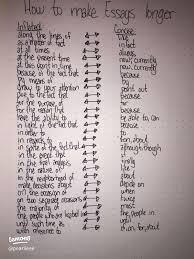 How to make Essays longer
Inflated Concise
along the lines of like
as a matter of fact in fact
at all times always
at the present time now, currently
at this point in time now, currently
because of the fact that because
by means of by
draw to your attention
due to the fact that because
for the purpose of for
for the reason that because
have the ability to be able to, can
in light of the fact that because
in order to to
in regards to for, about
in spite of the fact that although, though
in the event that if
in the final analysis finally
in the nature of like
in the neighborhood of about
make decisions about decide
on the occasion of
on two separate occasions twice
the majority of most
the people who are the people in
until such time as until
with reference to
Lemon8